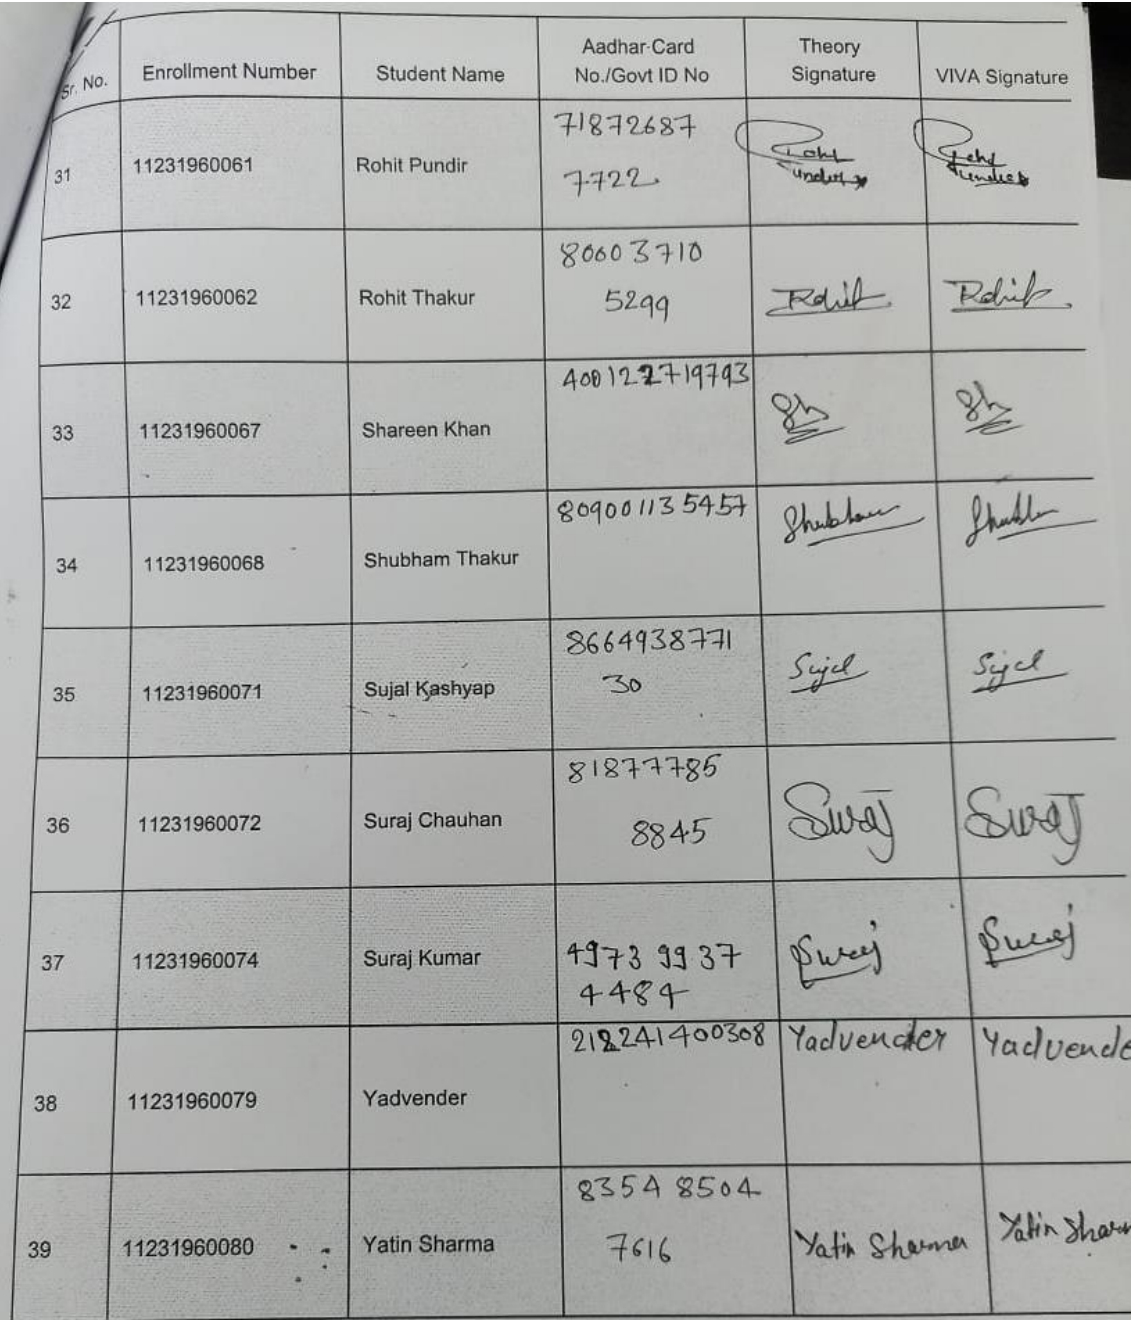 Sr. No. Enrollment Number Student Name Aadhar Card No./Govt ID No Theory Signature VIVA Signature
31 11231960061 Rohit Pundir 71872687
7722
32 11231960062 Rohit Thakur 80603710 Rohit Rohit
5299
33 11231960067 Shareen Khan 400122719793 Sh Sh
34 11231960068 Shubham Thakur 809001135457 Shubham
35 11231960071 Sujal Kashyap 8664938771 Sujal Sujal
30
36 11231960072 Suraj Chauhan 81877785 Suraj Suraj
8845
37 11231960074 Suraj Kumar 4973 9937 Suraj Suraj
4484
38 11231960079 Yadvender 218241400308 Yadvender Yadvende
39 11231960080 Yatin Sharma 8354 8504 Yatin Sharma Yatin Shar
7616